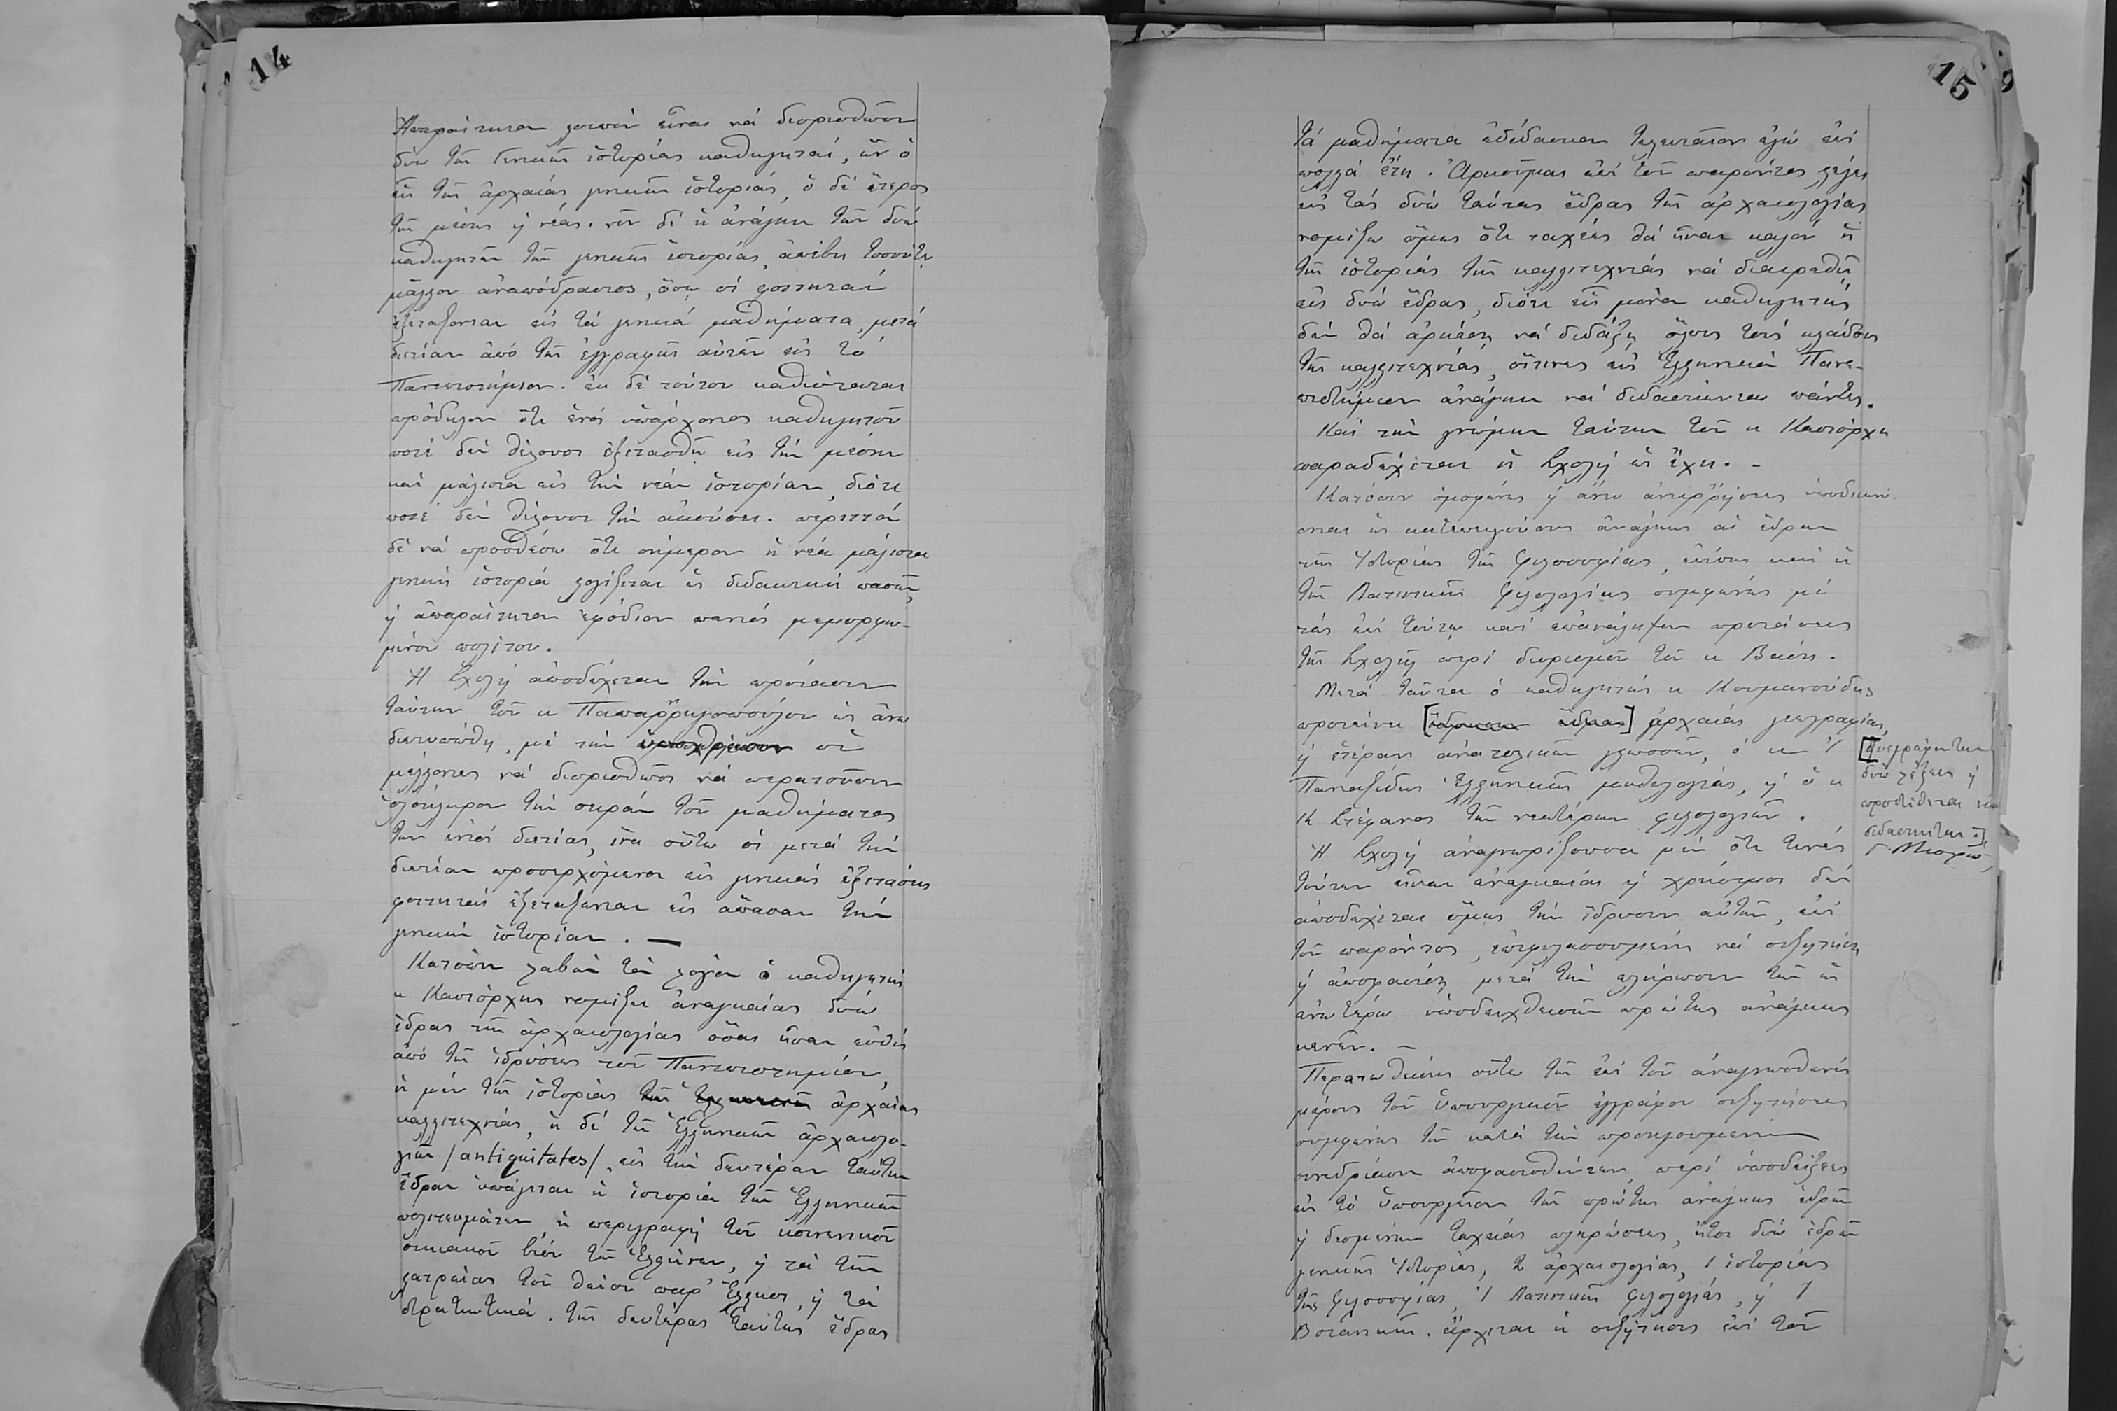 14
Ἀπαραίτητον λοιπὸν εἶναι νά διορισθῶσιν
δύο τῆς Γενικῆς ἱστορίας καθηγηταί, ὧν ὁ
εἷς τῆς ἀρχαίας γενικῆς ἱστορίας, ὁ δέ ἕτερος
τῆς μέσης ἢ νέας. νῦν δέ ἡ ἀνάγκη τῶν δύω
καθηγητῶν τῆς γενικῆς ἱστορίας, ἀπέβη τοσούτῳ
μᾶλλον ἀναπόδραστος, ὅσῳ οἱ φοιτηταί
ἐξετάζονται εἰς τά γενικά μαθήματα, μετά
διετίαν ἀπό τῆς ἐγγραφῆς αὐτῶν εἰς τό
Πανεπιστήμιον. ἐκ δέ τούτου καθίσταται
πρόδηλον ὅτι ἑνός ὑπάρχοντος καθηγητοῦ
ποτέ δέν θέλουσι ἐξετασθῆ εἰς τήν μέσην
καί μάλιστα εἰς τήν νέαν ἱστορίαν, διότι
ποτέ δέν θέλουσι τήν ἀκούσει. περιττόν
δέ νά προσθέσω ὅτι σήμερον ἡ νέα μάλιστα
γενική ἱστορία λογίζεται ὡς διδακτική πασῶν,
ἢ ἀπαραίτητον ἐφόδιον παντός μεμορφω-
μένου πολίτου.
Ἡ Σχολή ἀποδέχεται τήν πρότασιν
ταύτην τοῦ κ Παπαῤῥηγοπούλου ὡς ἄνω
διετυπώθη, μέ τήν ὑποχρέωσιν οἱ
μέλλοντες νά διορισθῶσι νά περατοῦσιν
ὁλόκληρον τήν σειράν τοῦ μαθήματος
των ἐντός διετίας, ἵνα οὕτω οἱ μετά τήν
διετίαν προσερχόμενοι εἰς γενικάς ἐξετάσεις
φοιτηταί ἐξετάζωνται εἰς ἅπασαν τήν
γενικήν ἱστορίαν. —
Κατόπιν λαβών τόν λόγον ὁ καθηγητής
κ Καστόρχης νομίζει ἀναγκαίας δύω
ἕδρας τῆς ἀρχαιολογίας ὅσαι ἦσαν εὐθύς
ἀπό τῆς ἱδρύσεως τοῦ Πανεπιστημίου,
ἡ μέν τῆς ἱστορίας τῆς ἀρχαίας
καλλιτεχνίας, ἡ δέ τῶν Ἑλληνικῶν ἀρχαιολο-
γιῶν /antiquitates/, εἰς τήν δευτέραν ταύτην
ἕδραν ὑπάγεται ἡ ἱστορία τῶν Ἑλληνικῶν
πολιτευμάτων, ἡ περιγραφή τοῦ κοινωνικοῦ
οἰκιακοῦ βίου τῶν Ἑλλήνων, ἢ τά τῆς
λατρείας τοῦ θείου παρ' Ἕλλησι, ἢ τά
στρατιωτικά. τῆς δευτέρας ταύτης ἕδρας
15
τά μαθήματα ἐδίδασκον τελευταῖον ἐγώ ἐπί
πολλά ἔτη. Ἀρκοῦμαι ἐπί τοῦ παρόντος λέγει
εἰς τάς δύω ταύτας ἕδρας τῆς ἀρχαιολογίας
νομίζω ὅμως ὅτι ταχέως θά ἦναι καλόν ἡ
τῆς ἱστορίας τῆς καλλιτεχνίας νά διαιρεθῇ
εἰς δύω ἕδρας, διότι εἷς μόνον καθηγητής
δέν θά ἀρκέσῃ νά διδάξῃ ὅλους τούς κλάδους
τῆς καλλιτεχνίας, οἵτινες εἰς Ἑλληνικόν Πανε-
πιστήμιον ἀνάγκη νά διδάσκωνται πάντες.
Καί τήν γνώμην ταύτην τοῦ κ Καστόρχη
παραδέχεται ἡ Σχολή ὡς ἔχει. -
Κατόπιν ὁμοφώνως ἢ ἄνευ ἀντιῤῥήσεως ὑποδεικνύ-
ονται ὡς κατεπειγούσης ἀνάγκης αἱ ἕδραι
τῆς Ἱστορίας τῆς φιλοσοφίας, ἐπίσης καί ἡ
τῆς Λατινικῆς φιλολογίας συμφώνως μέ
τάς ἐπί τούτῳ κατ' ἐπανάληψιν προτάσεις
τῆς Σχολῆς περί διορισμοῦ τοῦ κ Βάση.
Μετά ταῦτα ὁ καθηγητής κ Κουμανούδης
προτείνει [ἵδρυσιν ἕδρας] ἀρχαίας γεωγραφίας,
ἢ ἑτέραν ἀνατολικῶν γλωσσῶν, ὁ κ Ἰ
Πανταζίδης Ἑλληνικῆς μυθολογίας, ἢ ὁ κ
Κ Στέφανος τῶν νεωτέρων φιλολογιῶν.
Ἡ Σχολή ἀναγνωρίζουσα μέν ὅτι τινές
τούτων εἶναι ἀναγκαῖαι ἢ χρήσιμοι δέν
ἀποδέχεται ὅμως τήν ἵδρυσιν αὐτῶν, ἐπί
τοῦ παρόντος, ἐπιφυλασσομένη νά συζητήσῃ
ἢ ἀποφασίσῃ μετά τήν πλήρωσιν τῶν ὡς
ἀνωτέρω ὑποδειχθεισῶν πρώτης ἀνάγκης
κενῶν. -
Περατωθείσης οὕτω τῆς ἐπί τοῦ ἀναγνωσθέντος
μέρους τοῦ ὑπουργικοῦ ἐγγράφου συζητήσεως
συμφώνως τῶν κατά τήν προηγουμένην
συνεδρίασιν ἀποφασισθέντων, περί ὑποδείξεως
εἰς τό Ὑπουργεῖον τῶν πρώτης ἀνάγκης ἑδρῶν
ἢ δεομένων ταχείας πληρώσεως, ἤτοι δύω ἑδρῶν
γενικῆς Ἱστορίας, 2 ἀρχαιολογίας, 1 ἱστορίας
τῆς φιλοσοφίας, 1 Λατινικῆς φιλολογίας, ἢ 1
Βοτανικῆς. ἄρχεται ἡ συζήτησις ἐπί τοῦ
δύω λέξεις ἢ
προστίθεται